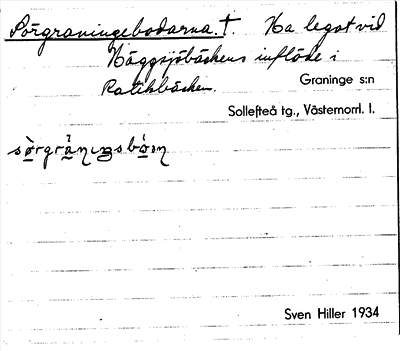 Sörgraningebodarna. † Ha legat vid
Häggsjöbäckens inflöde i
Ratikbäcken.
Graninge s:n
Sollefteå tg., Västernorrl. l.
Sven Hiller 1934